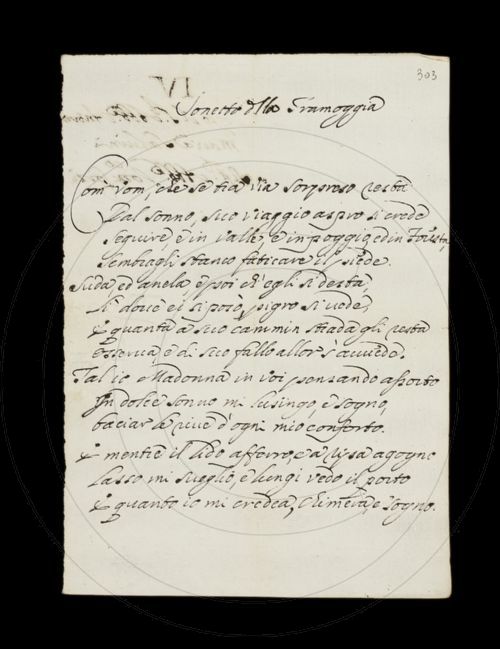 303
IV
Sonetto della Tramoggia
Com' vom, che se tra via sorpreso resta
Dal sonno, suo viaggio aspro si crede
Seguire e in valle, e in poggi, ed in foresta,
Sembragli stanco faticare il piede.
Suda, ed anela e poi ch' egli si desta,
Là dove ei si posò, pigro si vede,
E quanta a suo cammin strada gli resta
Osserva, e di suo fallo allor s'avvede.
Tal io Madonna in voi pensando assorto
In dolce sonno mi lusingo, e sogno,
baciar le rive d'ogni mio conforto.
E mentre il lido afferro, ch'a us'a agogno
Lasso mi sveglio, e lungi vedo il porto
E quanto io mi credea, Chimera, e sogno.